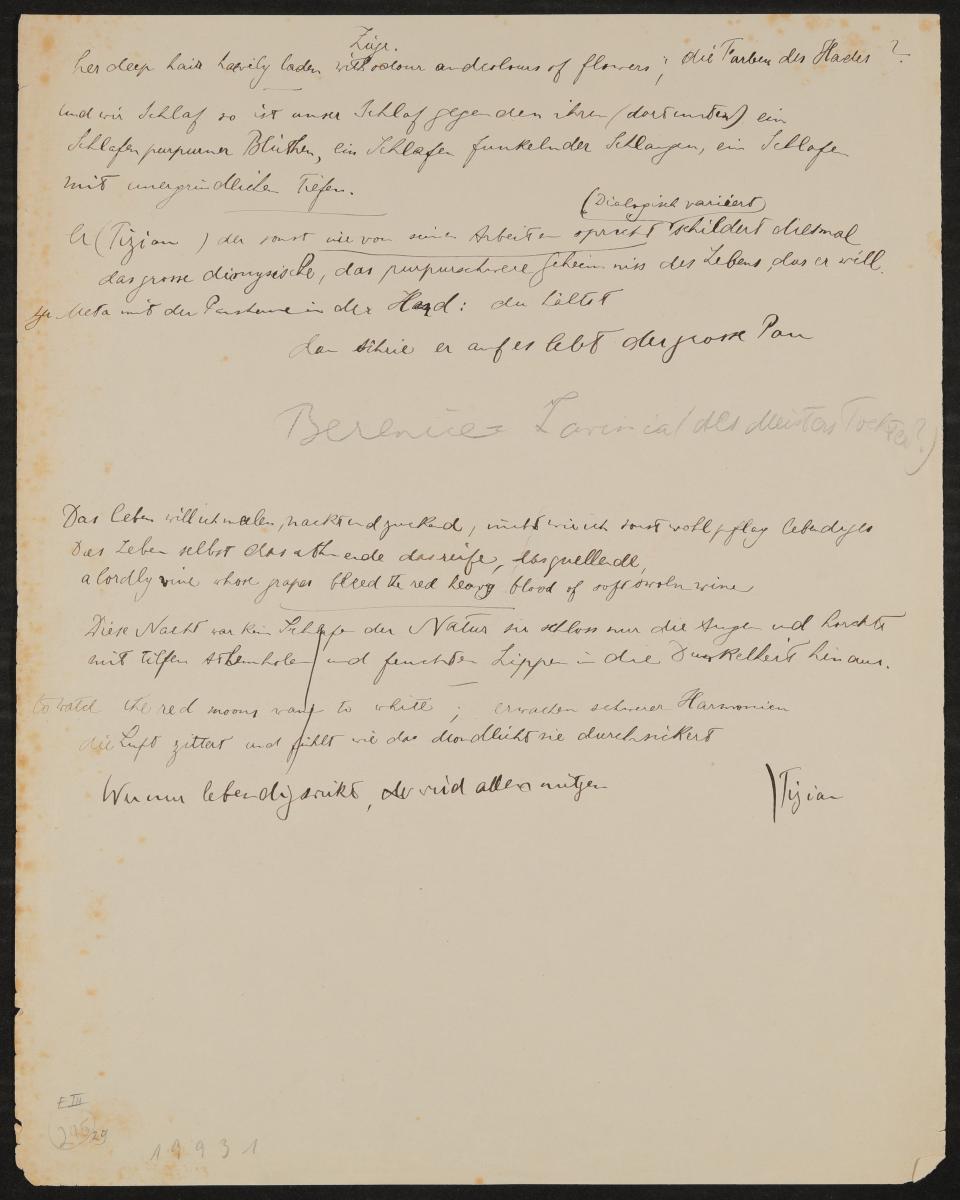 Züge.
her deep hair heavily laden with odour and colours of flowers; die Farben des Hades ?
und wir Schlaf so ist unser Schlaf gegen den ihren (dort unten) ein
Schlafen purpurner Blüthen, ein Schlafen funkelnder Schlangen, ein Schlafen
mit unergründlichen Tiefen.
(Dialogisch variiert)
Er (Tizian) der sonst nie von seinen Arbeiten spricht schildert diesmal
das grosse dionysische, das purpurschwere Geheimniss des Lebens, das er will.
Meta mit der Panherme in der Hand: du hältst
dann schrie er auf es lebt der grosse Pan
Berenice = Lavinia (des Meisters Tochter?)
Das Leben will ich malen, nackt und zuckend, nicht wie ich sonst wohl pflag lebendiges
Das Leben selbst das athmende das reife, das quellende,
a lordly vine whose grapes bleed the red heavy blood of soft swoln wine
Diese Nacht war kein Schlafen der Natur sie schloss nur die Augen und horchte
mit tiefen Athemholen und feuchten Lippen in die Dunkelheit hinaus.
to watch the red moons wane to white; erwachen schwerer Harmonien
die Luft zittert und fühlt wie das Mondlicht sie durchsickert
Wer nur lebendig wirkt, der wird allen nützen
) Tizian
F III
29
19931